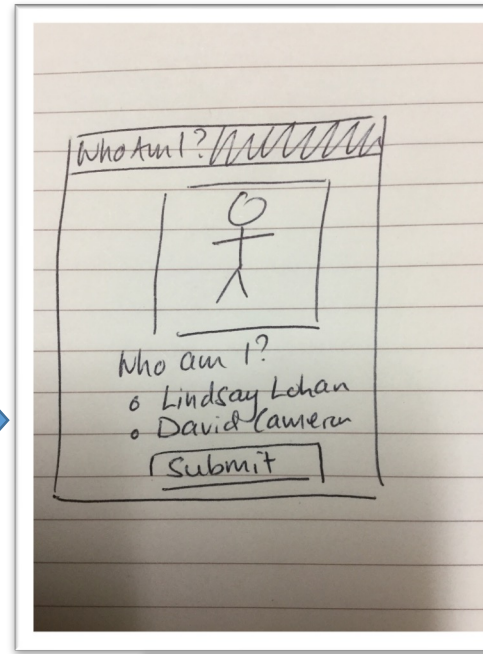 Who Am I?
Who am I?
Lindsay Lohan
David Cameron
Submit